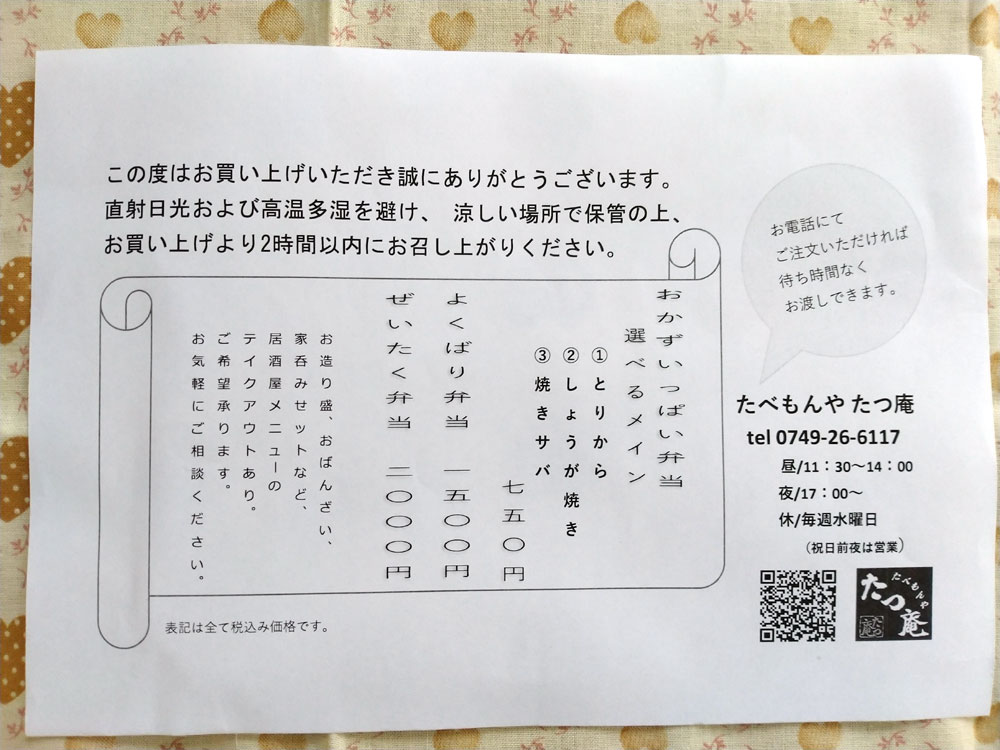 この度はお買い上げいただき誠にありがとうございます。
直射日光および高温多湿を避け、 涼しい場所で保管の上、
お買い上げより2時間以内にお召し上がりください。
おかずいっぱい弁当
選べるメイン
①とりから
②しょうが焼き
③焼きサバ
七五〇円
よくばり弁当 一五〇〇円
ぜいたく弁当 二〇〇〇円
お造り盛、おばんざい、
家呑みセットなど、
居酒屋メニューの
テイクアウトあり。
ご希望承ります。
お気軽にご相談ください。
表記は全て税込み価格です。
お電話にて
ご注文いただければ
待ち時間なく
お渡しできます。
たべもんや たつ庵
tel 0749-26-6117
昼/11：30～14：00
夜/17：00～
休/毎週水曜日
（祝日前夜は営業）
たべもんや
たつ庵